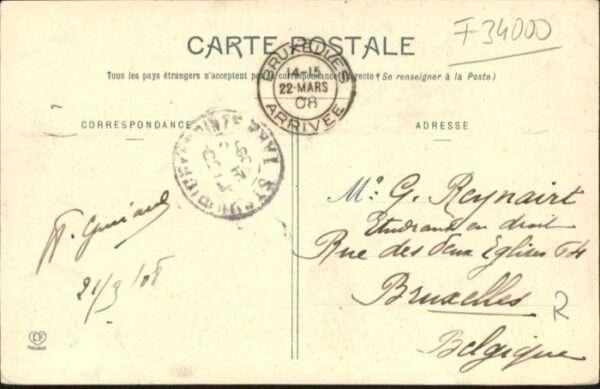 F34000
CARTE POSTALE
Tous les pays étrangers n'acceptent pas la correspondance au recto (Se renseigner à la Poste)
BRUXELLES
14-15
22-MARS
08
ARRIVEE
CORRESPONDANCE
ADRESSE
Mr G. Reynairt
Etudiant en droit
Rue des deux Eglises 64
Bruxelles
Belgique
21/3/08
R